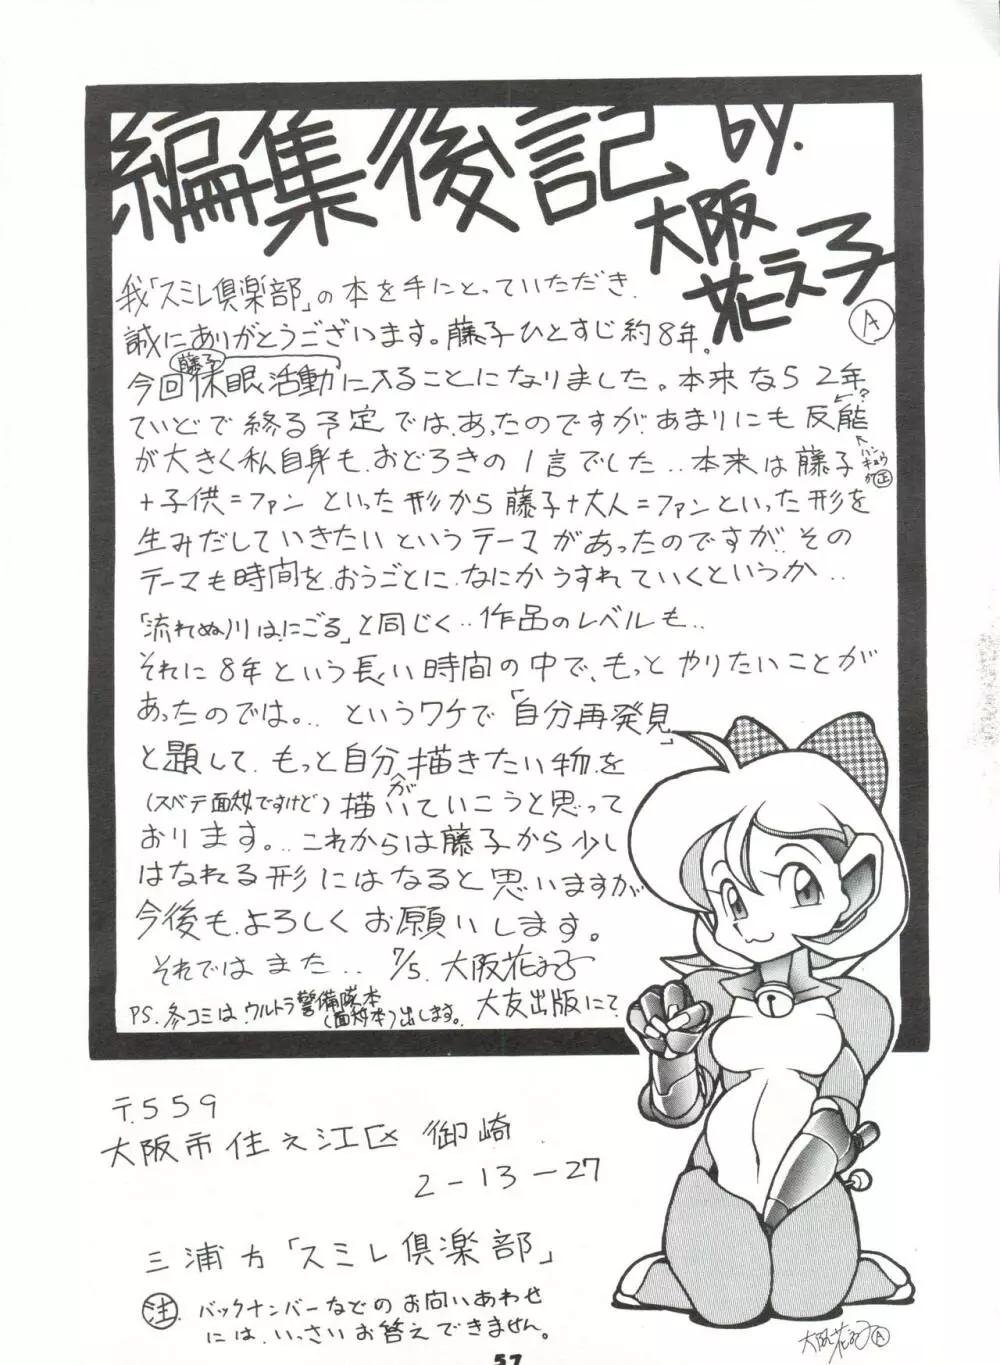 編集後記 by.
大阪
花え子
A
我「スミレ倶楽部」の本を手にとっていただき.
誠にありがとうございます。藤子ひとすじ約8年。
藤子
今回休眠活動に入ることになりました。本来なら2年
ていどで終る予定では、あったのですが、あまりにも反能
←?
ハンキョウが正
が大きく私自身も、おどろきの1言でした..本来は藤子
+子供=ファンといった形から藤子+大人=ファンといった形を
生みだしていきたいというテーマがあったのですが、その
テーマも時間を、おうごとに、なにかうすれていくというか..
「流れぬ川は、にごる」と同じく..作品のレベルも..
それに8年という長い時間の中で、もっとやりたいことが
あったのでは。.. というワケで「自分再発見」
と題して、もっと自分が描きたい物を
(スベテ面妖ですけど)描いていこうと思って
おります。..これからは藤子から少し
はなれる形にはなると思いますが
今後も、よろしくお願いします。
それではまた.. 7/5. 大阪花え子
大友出版にて
PS. 冬コミは、ウルトラ警備隊本
(面妖本)出します。
〒559
大阪市住之江区御崎
2-13-27
三浦方「スミレ倶楽部」
注. バックナンバーなどのお問いあわせ
には、いっさいお答えできません。
大阪花え子 A
57